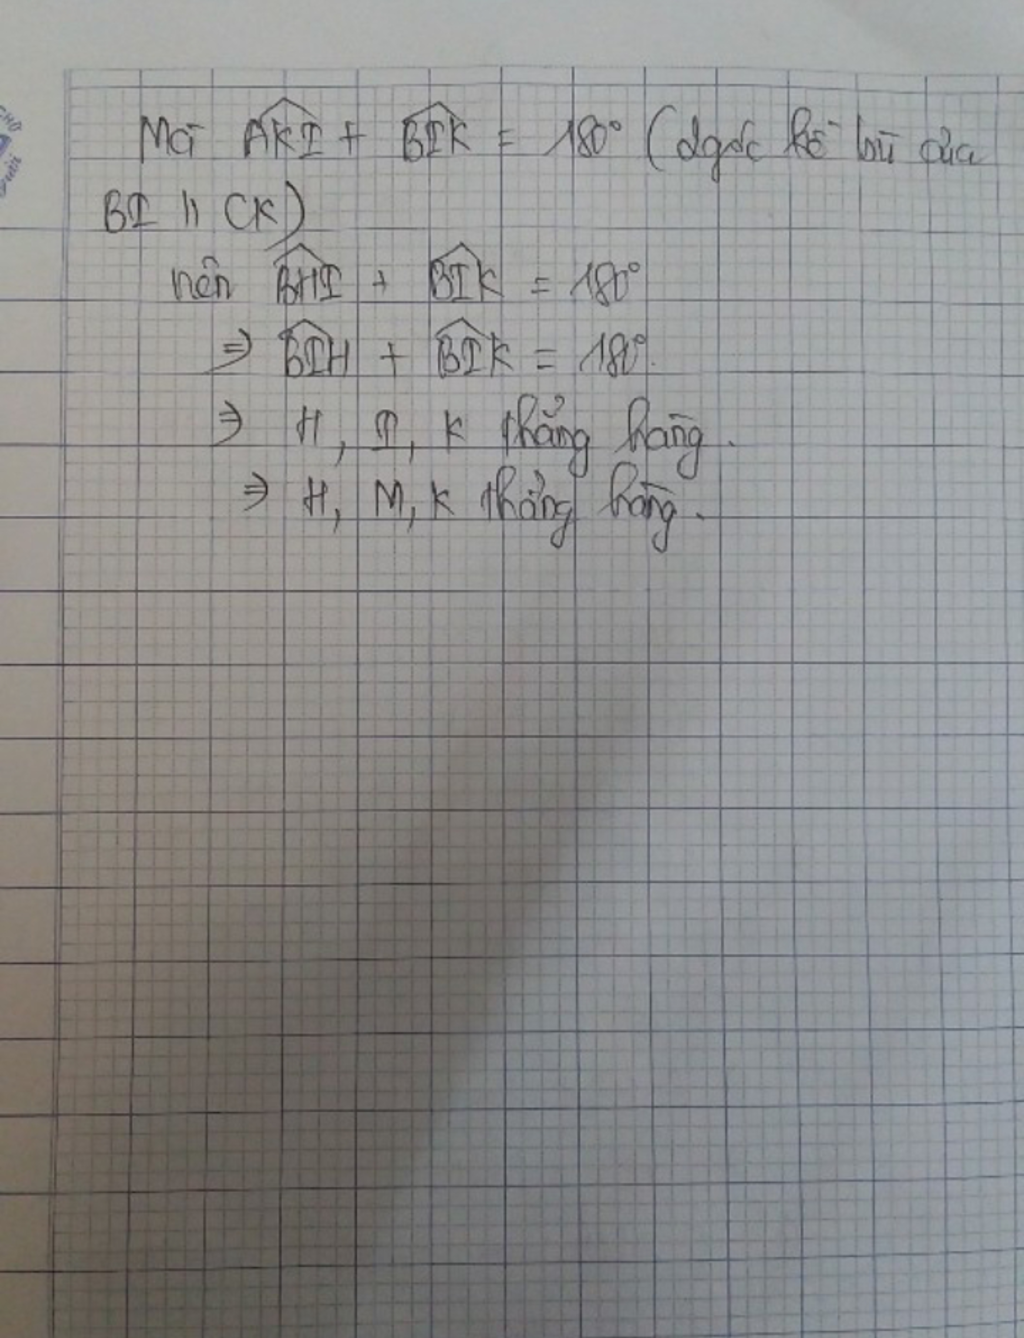 Mà AKI + BIK = 180° (2góc kề bù của
BI // CK)
nên BHI + BIK = 180°
⇒ BIH + BIK = 180°.
⇒ H, I, K thẳng hàng.
⇒ H, M, K thẳng hàng.